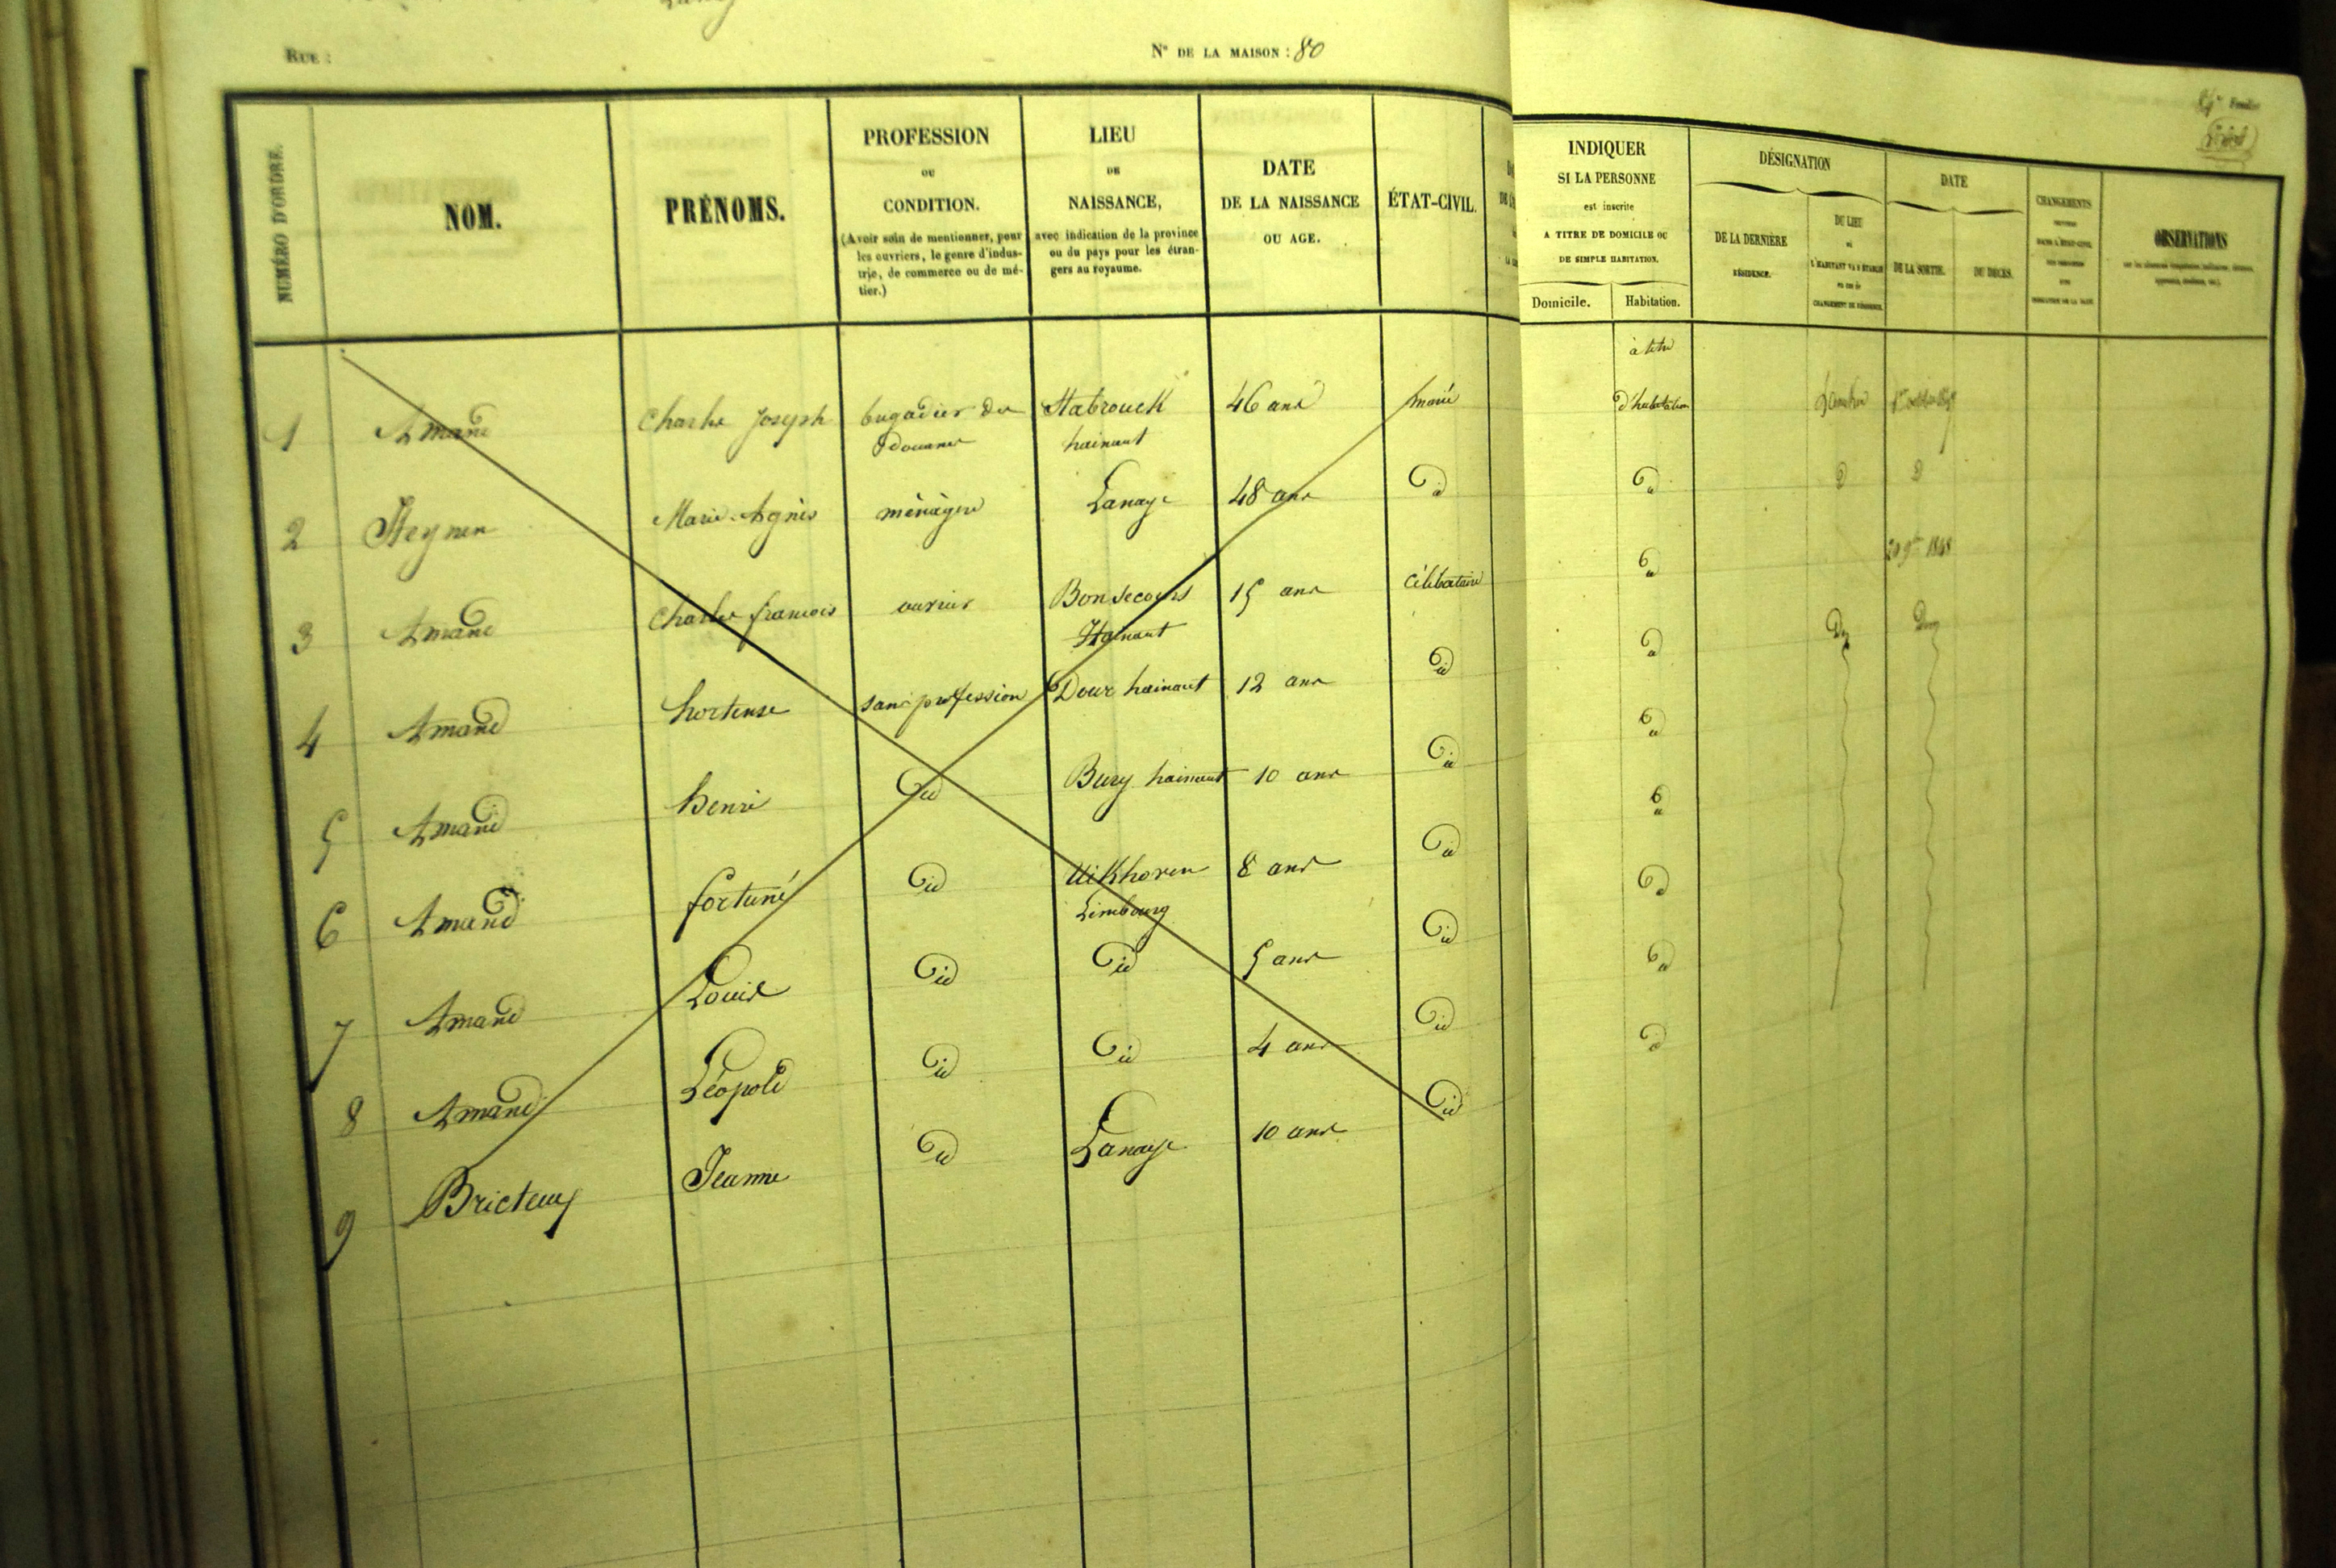 RUE :
N° DE LA MAISON : 80
NUMÉRO D'ORDRE.
NOM.
PRÉNOMS.
PROFESSION
OU
CONDITION.
(Avoir soin de mentionner, pour
les ouvriers, le genre d'indus-
trie, de commerce ou de mé-
tier.)
LIEU
DE
NAISSANCE,
avec indication de la province
ou du pays pour les étran-
gers au royaume.
DATE
DE LA NAISSANCE
OU AGE.
ÉTAT-CIVIL.
INDIQUER
SI LA PERSONNE
est inscrite
A TITRE DE DOMICILE OU
DE SIMPLE HABITATION.
Domicile.
Habitation.
DÉSIGNATION
DE LA DERNIÈRE
RÉSIDENCE.
DU LIEU
où
L'HABITANT VA S'ÉTABLIR
en cas de
CHANGEMENT DE RÉSIDENCE.
DATE
DE LA SORTIE.
DU DÉCÈS.
CHANGEMENTS
OBSERVATIONS
à titre
1 Amand Charles Joseph brigadier de Stabrouck 46 ans marié d'habitation
douanes hainaut
2 Heynen Marie-Agnès ménagère Lanaye 48 ans id id
3 Amand Charles francois ouvrier Bonsecours 15 ans célibataire id 1848
Hainaut
4 Amand hortense sans profession Dour hainaut 12 ans id id
5 Amand henri id Bury hainaut 10 ans id id
6 Amand fortuné id Uikhoven 8 ans id id
Limbourg
7 Amand Louis id id 5 ans id id
8 Amand Léopold id id 4 ans id id
9 Bricteux Jeanne id Lanaye 10 ans id id